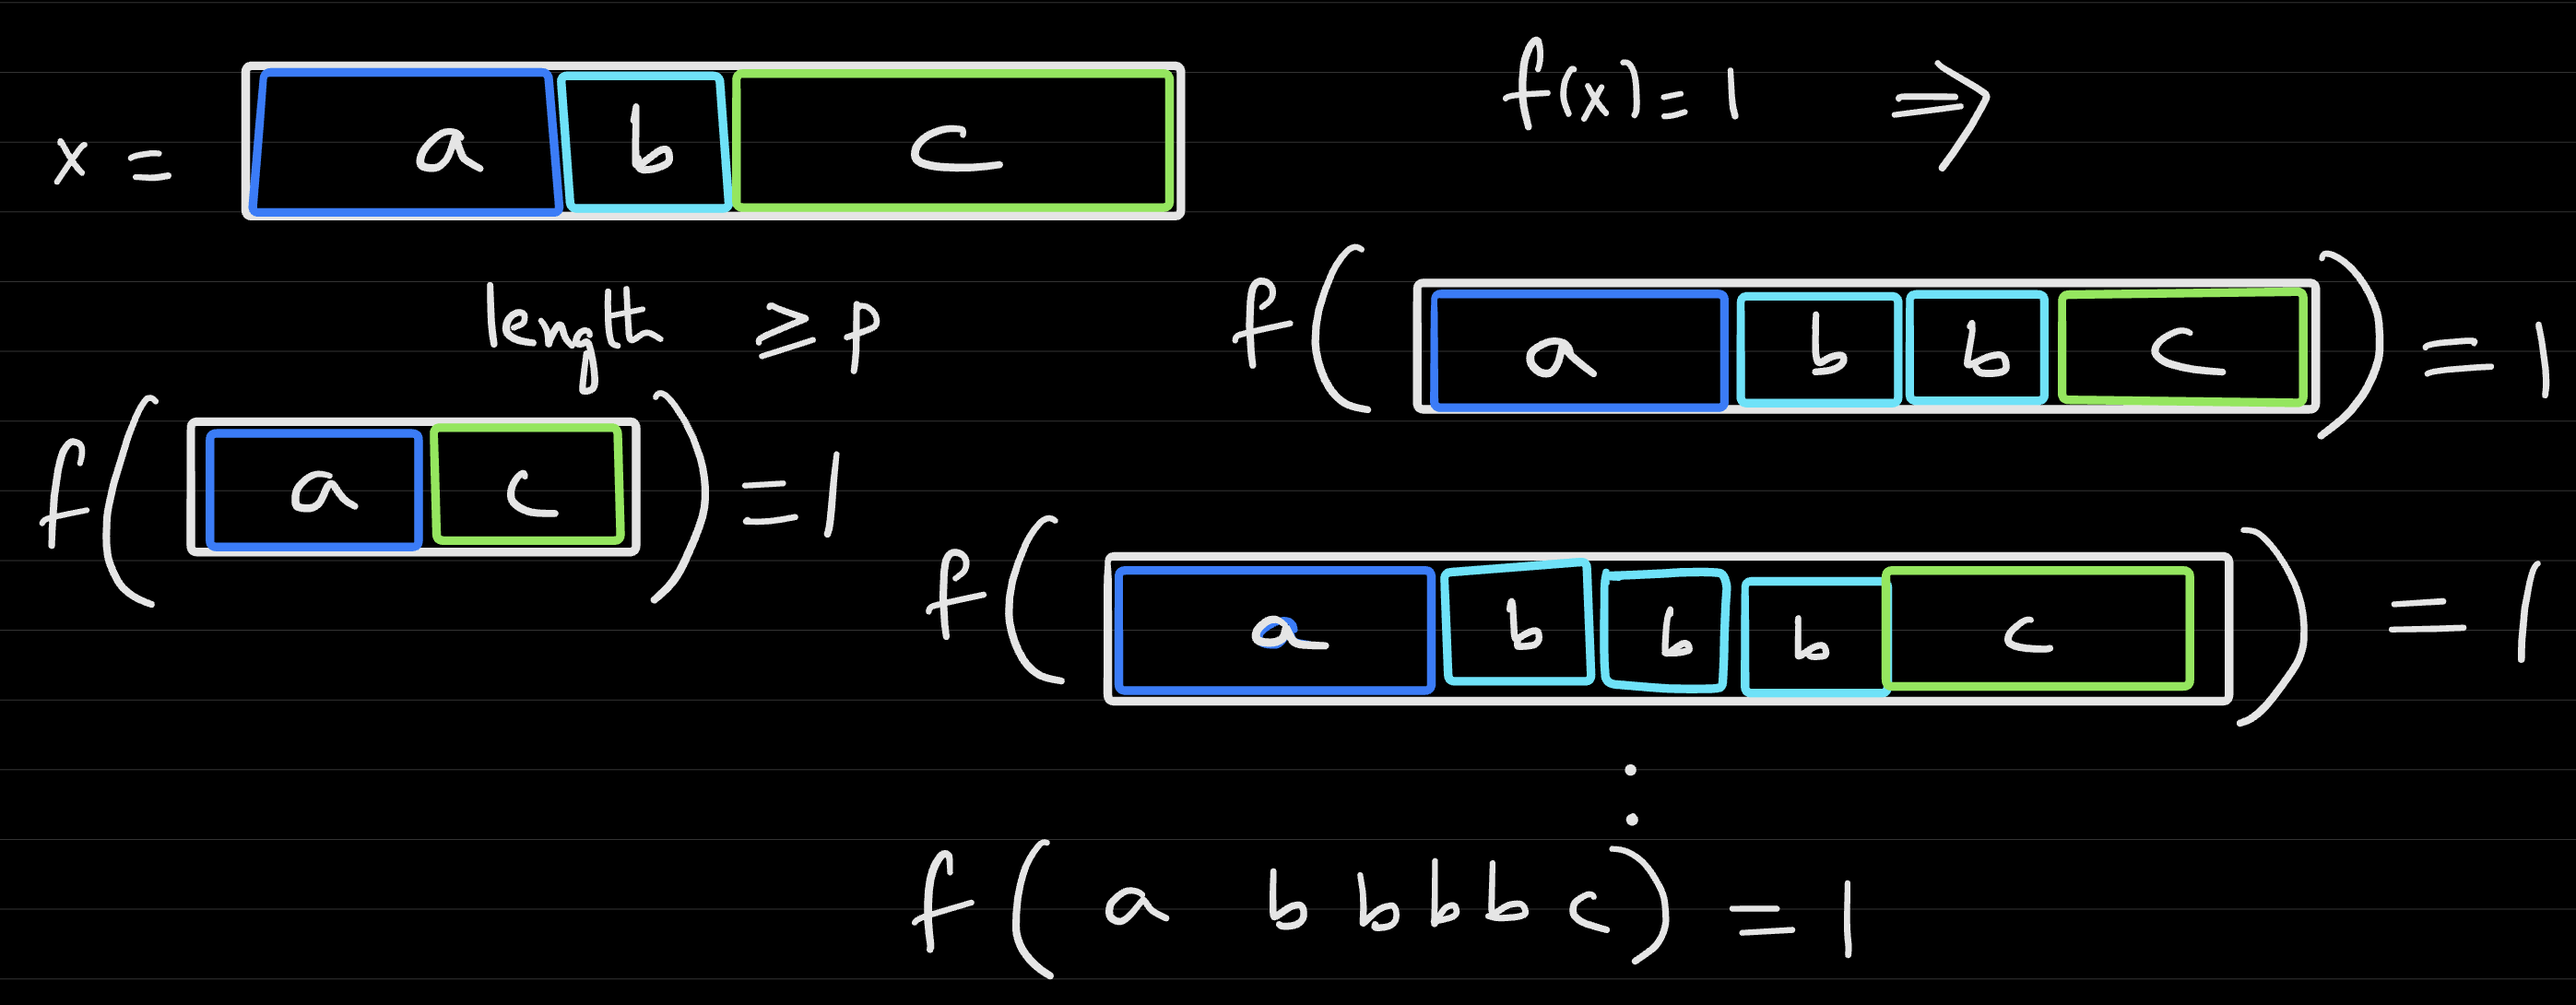 x = a b c f(x) = 1 ⇒
length ≥ p
f( a b b c ) = 1
f( a c ) = 1
f( a b b b c ) = 1
:
f( a b b b b c ) = 1